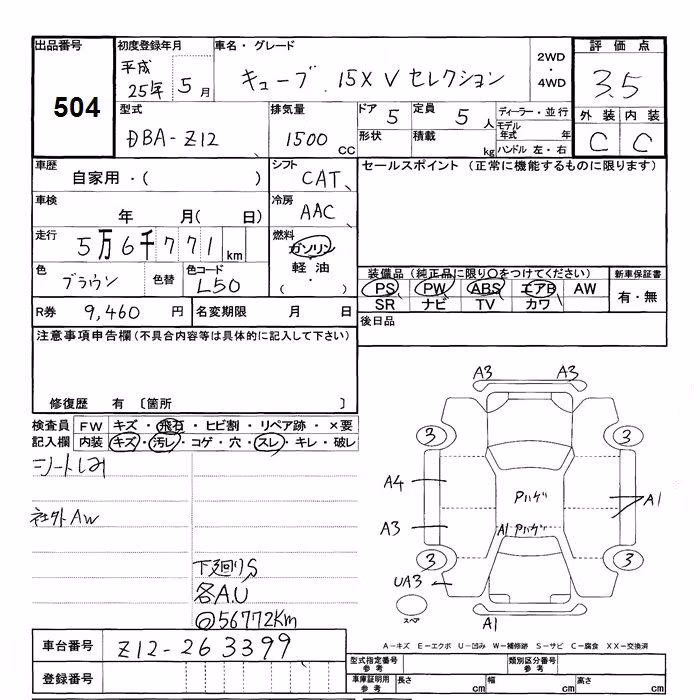 出品番号
504
初度登録年月
平成
25年 5月
車名・グレード
キューブ 15X V セレクション
2WD
・
4WD
評価点
3.5
型式
DBA-Z12
排気量
1500 CC
ドア 5
定員 5 人
形状
積載 kg
ディーラー・並行
モデル年式 年
ハンドル 左・右
外装 内装
C C
車歴
自家用・( )
シフト
CAT
セールスポイント (正常に機能するものに限ります)
車検
年 月( 日)
冷房
AAC
走行
5万6千771 km
燃料
ガソリン
軽油
( ・ )
色
ブラウン
色替
色コード
L50
装備品(純正品に限り○をつけてください)
PS PW ABS エアB AW
SR ナビ TV カワ
新車保証書
有・無
R券 9,460 円
名変期限 月 日
後日品
注意事項申告欄(不具合内容等は具体的に記入して下さい)
修復歴 有 〔箇所 〕
検査員
記入欄
FW キズ・飛石・ヒビ割・リペア跡・×要
内装 キズ・汚レ・コゲ・穴・スレ・キレ・破レ
シートしみ
社外AW
下廻りS
各A.U
◎56772Km
A3 A3
3 3
A4
Pハゲ
A1
A3
A1 Pハゲ
3 3
UA3
スペア
A1
車台番号 Z12-263399
登録番号
A-キズ E-エクボ U-凹み W-補修跡 S-サビ C-腐食 XX-交換済
型式指定番号
参考
類別区分番号
参考
車庫証明用
参考
長さ cm 幅 cm 高さ cm